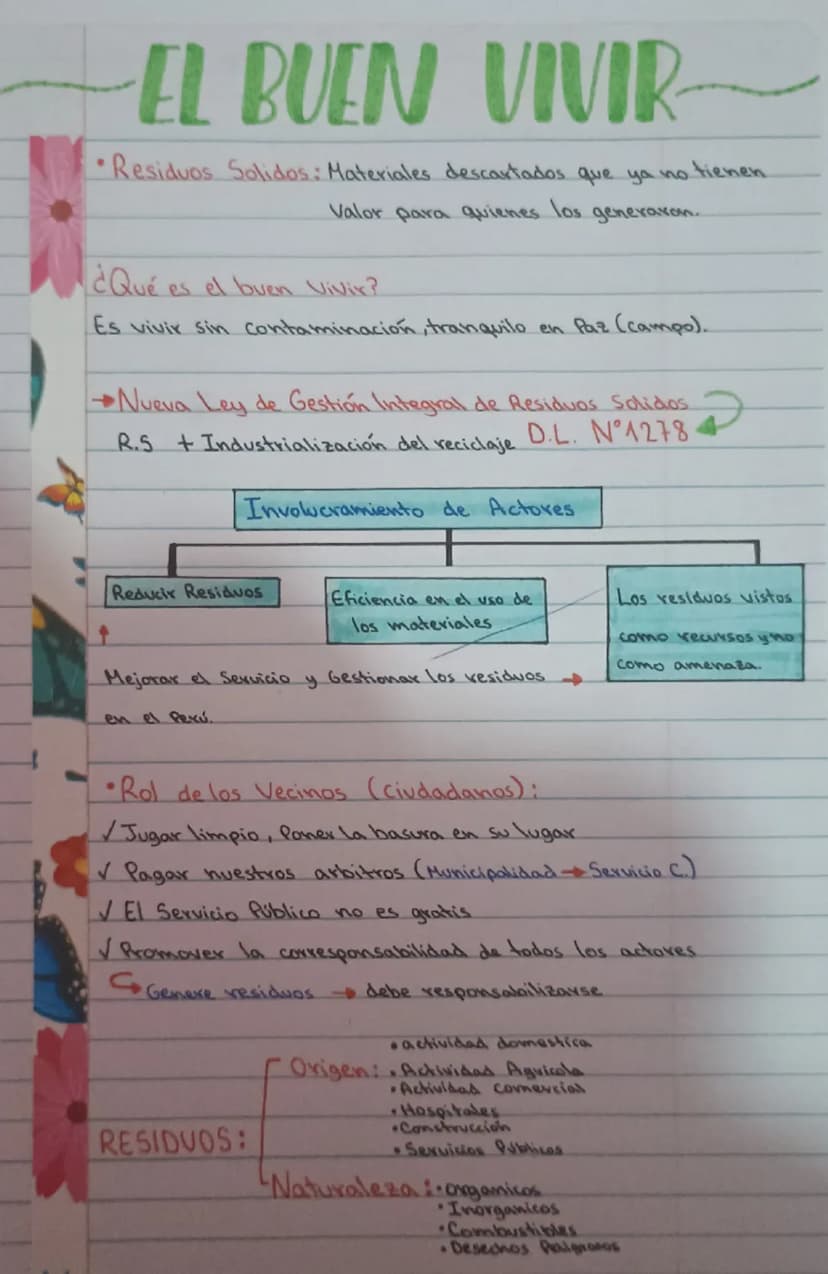 EL BUEN VIVIR
• Residuos Solidos: Materiales descartados que ya no tienen
Valor para quienes los generaron.
¿Qué es el buen Vivir?
Es vivir sin contaminación, tranquilo en Paz (campo).
→ Nueva Ley de Gestión Integral de Residuos Solidos
R.S + Industrialización del reciclaje D.L. N°1278
Involucramiento de Actores
Reducir Residuos
Eficiencia en el uso de
los materiales
Los residuos vistos
como recursos y no
como amenaza.
↑
Mejorar el Servicio y Gestionar los residuos →
en el Perú.
• Rol de los Vecinos (ciudadanos):
✓ Jugar limpio, Poner la basura en su lugar
✓ Pagar nuestros arbitros (Municipalidad → Servicio C.)
✓ El Servicio Público no es gratis
✓ Promover la corresponsabilidad de todos los actores
↪ Genere residuos → debe responsabilizarse
RESIDUOS:
Origen:
• actividad domestica
• Actividad Agricola
• Actividad comercial
• Hospitales
• Construcción
• Servicios Públicos
Naturaleza:
• organicos
• Inorganicos
• Combustibles
• Desechos Peligrosos